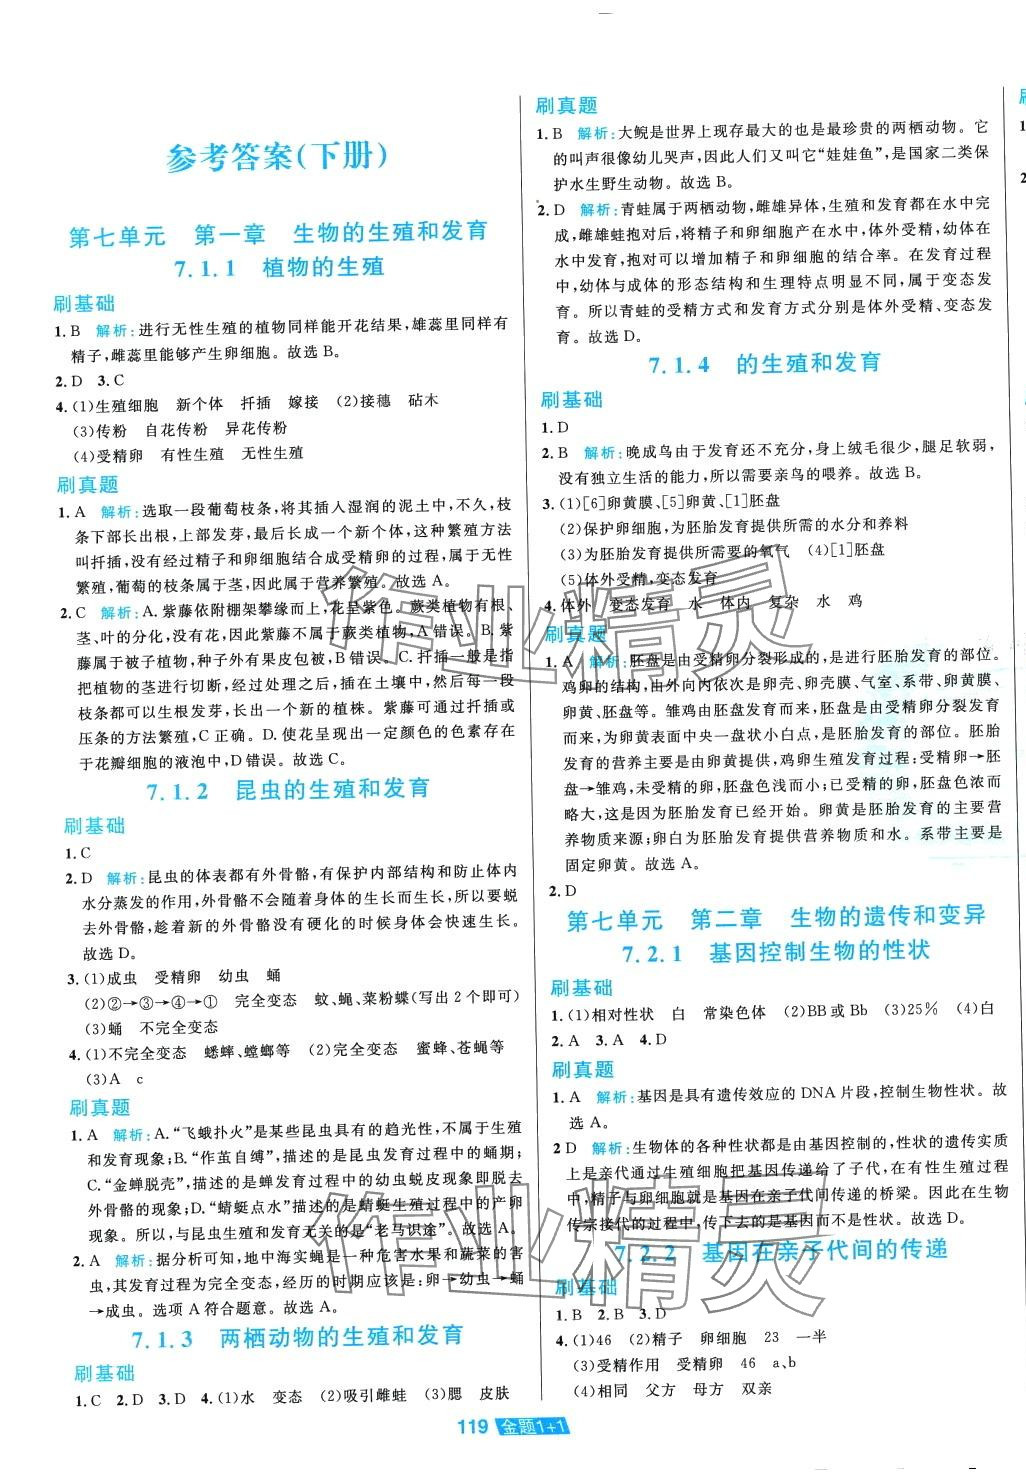 参考答案(下册)
第七单元　第一章　生物的生殖和发育
7.1.1　植物的生殖
刷基础
1. B　解析:进行无性生殖的植物同样能开花结果,雄蕊里同样有
精子,雌蕊里能够产生卵细胞。故选 B。
2. D　3. C
4. (1)生殖细胞　新个体　扦插　嫁接　(2)接穗　砧木
(3)传粉　自花传粉　异花传粉
(4)受精卵　有性生殖　无性生殖
刷真题
1. A　解析:选取一段葡萄枝条,将其插入湿润的泥土中,不久,枝
条下部长出根,上部发芽,最后长成一个新个体,这种繁殖方法
叫扦插,没有经过精子和卵细胞结合成受精卵的过程,属于无性
繁殖,葡萄的枝条属于茎,因此属于营养繁殖。故选 A。
2. C　解析:A. 紫藤依附棚架攀缘而上,花呈紫色。蕨类植物有根、
茎、叶的分化,没有花,因此紫藤不属于蕨类植物,A 错误。B. 紫
藤属于被子植物,种子外有果皮包被,B 错误。C. 扦插一般是指
把植物的茎进行切断,经过处理之后,插在土壤中,然后每一段
枝条都可以生根发芽,长出一个新的植株。紫藤可通过扦插或
压条的方法繁殖,C 正确。D. 使花呈现出一定颜色的色素存在
于花瓣细胞的液泡中,D 错误。故选 C。
7.1.2　昆虫的生殖和发育
刷基础
1. C
2. D　解析:昆虫的体表都有外骨骼,有保护内部结构和防止体内
水分蒸发的作用,外骨骼不会随着身体的生长而生长,所以要蜕
去外骨骼,趁着新的外骨骼没有硬化的时候身体会快速生长。
故选 D。
3. (1)成虫　受精卵　幼虫　蛹
(2)②→③→④→①　完全变态　蚊、蝇、菜粉蝶(写出 2 个即可)
(3)蛹　不完全变态
4. (1)不完全变态　蟋蟀、螳螂等　(2)完全变态　蜜蜂、苍蝇等
(3)A　c
刷真题
1. A　解析:A.“飞蛾扑火”是某些昆虫具有的趋光性,不属于生殖
和发育现象;B.“作茧自缚”,描述的是昆虫发育过程中的蛹期;
C.“金蝉脱壳”,描述的是蝉发育过程中的幼虫蜕皮现象,即蜕去
外骨骼的现象;D.“蜻蜓点水”描述的是蜻蜓生殖过程中的产卵
现象。所以,与昆虫生殖和发育无关的是“老马识途”。故选 A。
2. A　解析:据分析可知,地中海实蝇是一种危害水果和蔬菜的害
虫,其发育过程为完全变态,经历的时期应该是:卵→幼虫→蛹
→成虫。选项 A 符合题意。故选 A。
7.1.3　两栖动物的生殖和发育
刷基础
1. C　2. D　3. D　4. (1)水　变态　(2)吸引雌蛙　(3)鳃　皮肤
刷真题
1. B　解析:大鲵是世界上现存最大的也是最珍贵的两栖动物。它
的叫声很像幼儿哭声,因此人们又叫它“娃娃鱼”,是国家二类保
护水生野生动物。故选 B。
2. D　解析:青蛙属于两栖动物,雌雄异体,生殖和发育都在水中完
成,雌雄蛙抱对后,将精子和卵细胞产在水中,体外受精,幼体在
水中发育,抱对可以增加精子和卵细胞的结合率。在发育过程
中,幼体与成体的形态结构和生理特点明显不同,属于变态发
育。所以青蛙的受精方式和发育方式分别是体外受精、变态发
育。故选 D。
7.1.4　的生殖和发育
刷基础
1. D
2. B　解析:晚成鸟由于发育还不充分,身上绒毛很少,腿足软弱,
没有独立生活的能力,所以需要亲鸟的喂养。故选 B。
3. (1)[6]卵黄膜、[5]卵黄、[1]胚盘
(2)保护卵细胞,为胚胎发育提供所需的水分和养料
(3)为胚胎发育提供所需要的氧气　(4)[1]胚盘
(5)体外受精,变态发育
4. 体外　变态发育　水　体内　复杂　水　鸡
刷真题
1. A　解析:胚盘是由受精卵分裂形成的,是进行胚胎发育的部位。
鸡卵的结构,由外向内依次是卵壳、卵壳膜、气室、系带、卵黄膜、
卵黄、胚盘等。雏鸡由胚盘发育而来,胚盘是由受精卵分裂发育
而来,为卵黄表面中央一盘状小白点,是胚胎发育的部位。胚胎
发育的营养主要由卵黄提供,鸡卵生殖发育过程:受精卵→胚
盘→雏鸡,未受精的卵,胚盘色浅而小;已受精的卵,胚盘色浓而
略大,这是因为胚胎发育已经开始。卵黄是胚胎发育的主要营
养物质来源;卵白为胚胎发育提供营养物质和水。系带主要是
固定卵黄。故选 A。
2. D
第七单元　第二章　生物的遗传和变异
7.2.1　基因控制生物的性状
刷基础
1. (1)相对性状　白　常染色体　(2)BB 或 Bb　(3)25%　(4)白
2. A　3. A　4. D
刷真题
1. A　解析:基因是具有遗传效应的 DNA 片段,控制生物性状。故
选 A。
2 D　解析:生物体的各种性状都是由基因控制的,性状的遗传实质
上是亲代通过生殖细胞把基因传递给了子代,在有性生殖过程
中,精子与卵细胞就是基因在亲子代间传递的桥梁。因此在生物
传宗接代的过程中,传下去的是基因而不是性状。故选 D。
7.2.2　基因在亲子代间的传递
刷基础
1. B　2. B　3. D
4. (1)46　(2)精子　卵细胞　23　一半
(3)受精作用　受精卵　46　a、b
(4)相同　父方　母方　双亲
119　金题1+1
作业精灵
作业精灵